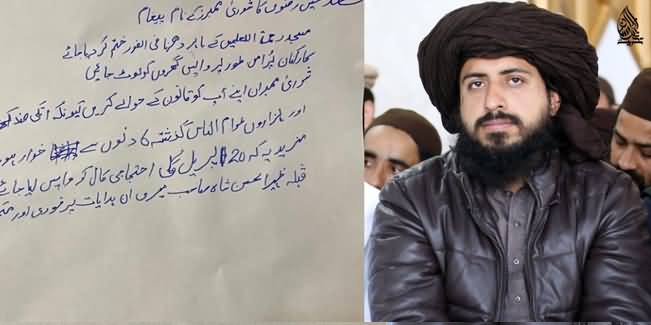 رضوی کا شوریٰ ممبرز کے نام پیغام
مسجد رحمۃ اللعلمین کے باہر دھرنا فی الفور ختم کر دیا جائے
کارکنان پُرامن طور پر واپس گھروں کو لوٹ جائیں
شوریٰ ممبران اپنے آپ کو قانون کے حوالے کریں کیونکہ انکی ضد کی
اور ہزاروں عوام الناس گذشتہ 6 دنوں سے خوار ہو
مزید یہ کہ 20 اپریل کی احتجامی کال کو واپس لیا جائے
قبلہ ظہیر الحسن شاہ صاحب میری ان ہدایات پر فوری اور